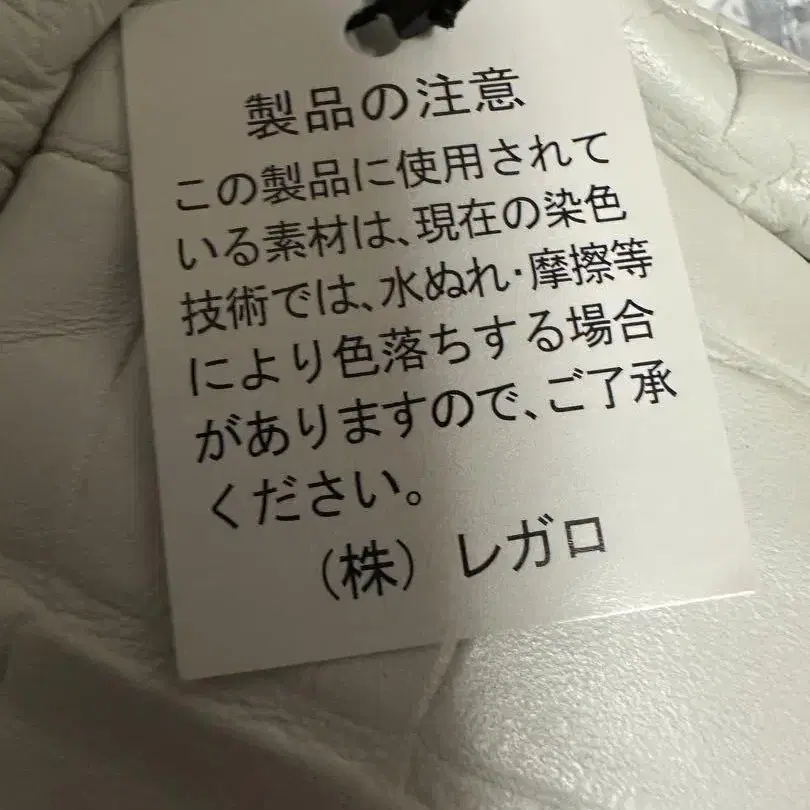 製品の注意
この製品に使用されて
いる素材は、現在の染色
技術では、水ぬれ・摩擦等
により色落ちする場合
がありますので、ご了承
ください。
（株）レガロ